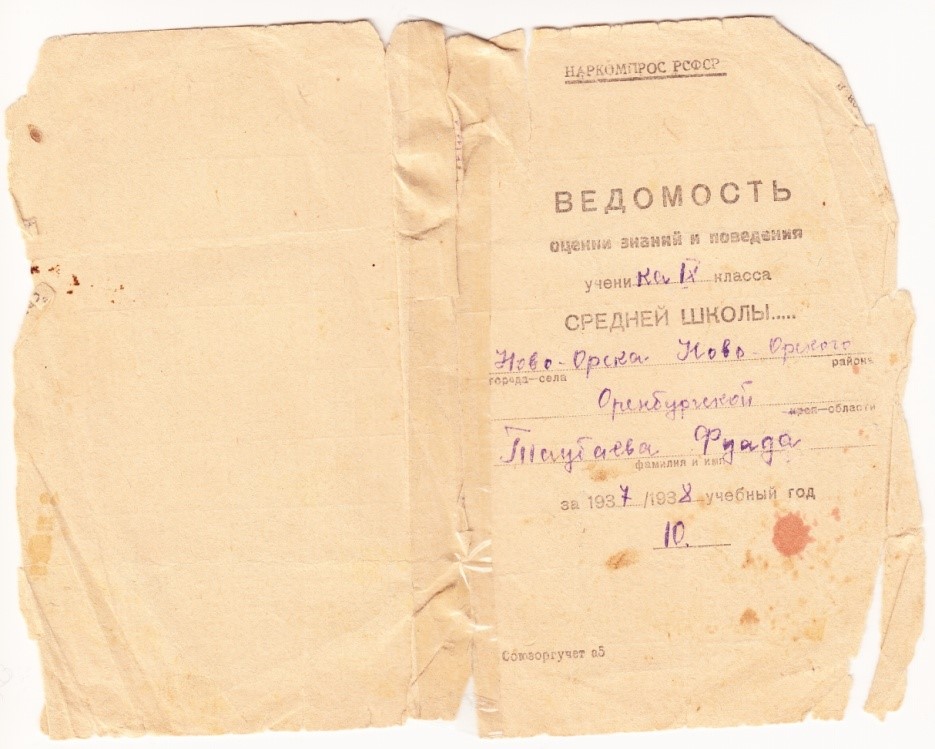 НАРКОМПРОС РСФСР
ВЕДОМОСТЬ
оценки знаний и поведения
ученика IX класса
СРЕДНЕЙ ШКОЛЫ.....
Ново-Орска Ново-Орского
города-села района
Оренбургской
края-области
Таутаева Фуада
фамилия и имя
за 1937/1938 учебный год
10.
Союзоргучет а5